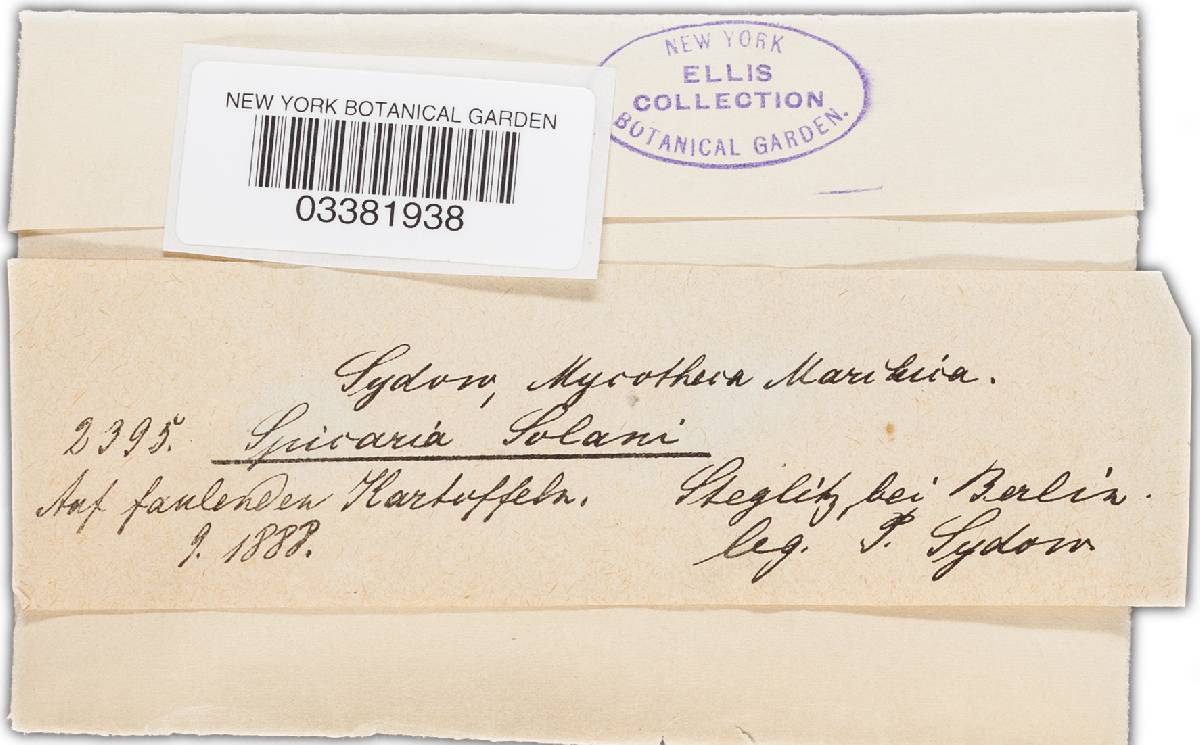 NEW YORK BOTANICAL GARDEN
03381938
NEW YORK
ELLIS
COLLECTION
BOTANICAL GARDEN.
Sydow, Mycotheca Marchica.
2395. Spicaria Solani
Auf faulenden Kartoffeln. Steglitz bei Berlin.
9. 1888. leg. P. Sydow